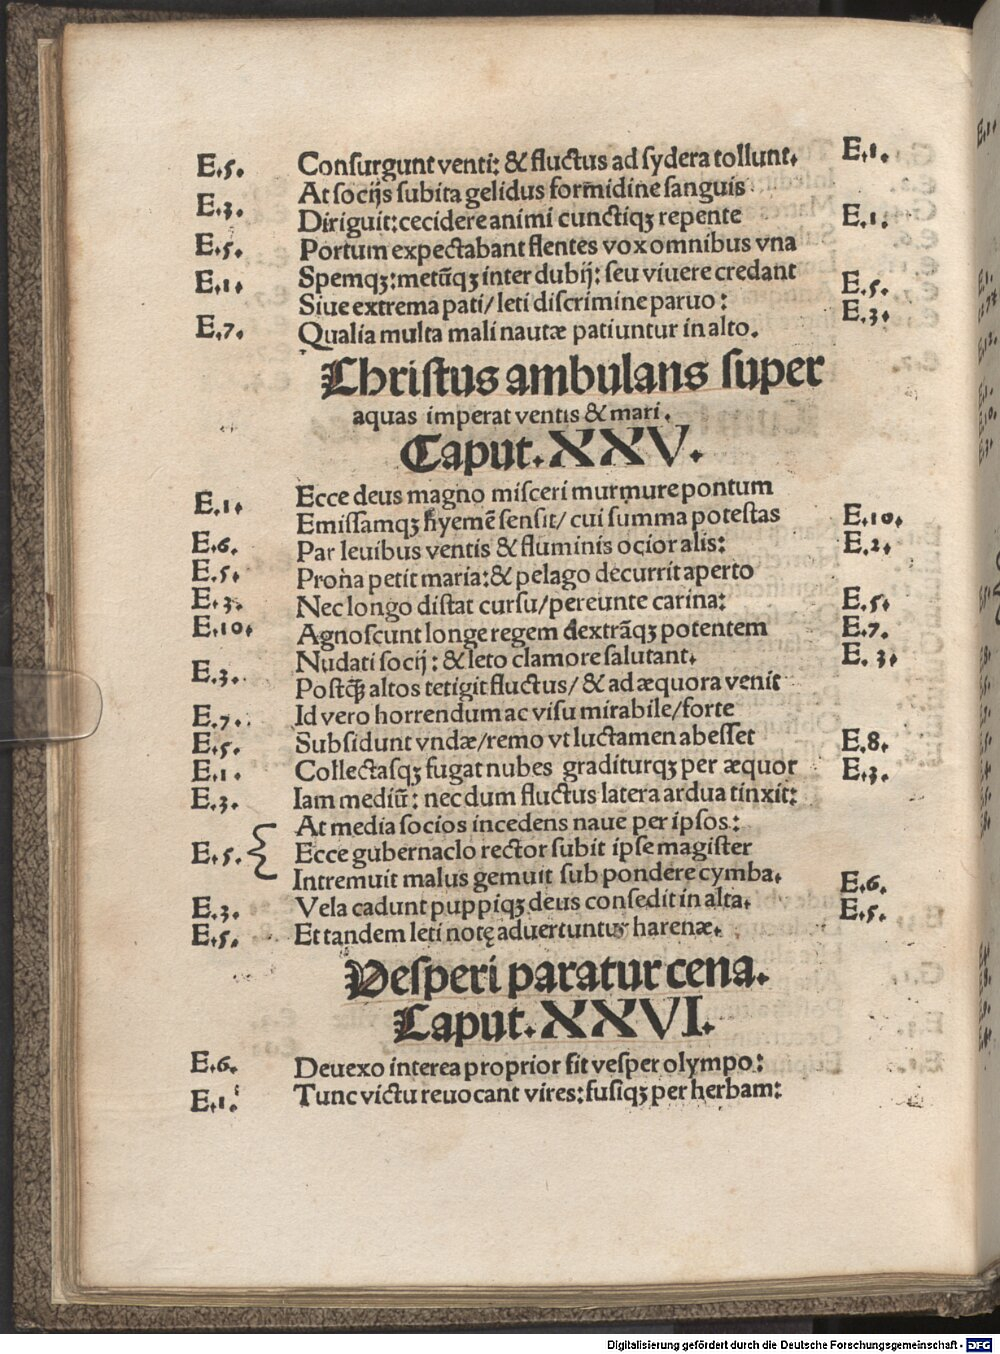 E.5. Conſurgunt venti: & fluctus ad ſydera tollunt. E.1.
At ſocijs ſubita gelidus formidine ſanguis
E.3. Diriguit: cecidere animi cunctiqꝫ repente E.1.
E.5. Portum expectabant flentes vox omnibus vna
E.1. Spemqꝫ: metūqꝫ inter dubij: ſeu viuere credant
Siue extrema pati/ leti diſcrimine paruo: E.5.
E.7. Qualia multa mali nautæ patiuntur in alto. E.3.
Chriſtus ambulans ſuper
aquas imperat ventis & mari.
Caput. XXV.
E.1. Ecce deus magno miſceri murmure pontum
Emiſſamqꝫ hyemē ſenſit/ cui ſumma poteſtas E.10.
E.6. Par leuibus ventis & fluminis ocior alis: E.2.
E.5. Prona petit maria: & pelago decurrit aperto
E.3. Nec longo diſtat curſu/ pereunte carina: E.5.
E.10. Agnoſcunt longe regem dextrāqꝫ potentem E.7.
Nudati ſocij: & leto clamore ſalutant. E.3.
E.3. Poſtꝙ̃ altos tetigit fluctus/ & ad æquora venit
E.7. Id vero horrendum ac viſu mirabile/ forte
E.5. Subſidunt vndæ/ remo vt luctamen abeſſet E.8.
E.1. Collectaſqꝫ fugat nubes graditurqꝫ per æquor E.3.
E.3. Iam mediū: nec dum fluctus latera ardua tinxit:
At media ſocios incedens naue per ipſos:
E.5. Ecce gubernaclo rector ſubit ipſe magiſter
Intremuit malus gemuit ſub pondere cymba. E.6.
E.3. Vela cadunt puppiqꝫ deus conſedit in alta. E.5.
E.5. Et tandem leti notę aduertuntur harenæ.
Veſperi paratur cena.
Caput. XXVI.
E.6. Deuexo interea proprior fit veſper olympo:
E.1. Tunc victu reuocant vires: fuſiqꝫ per herbam:
Digitalisierung gefördert durch die Deutsche Forschungsgemeinschaft - DFG